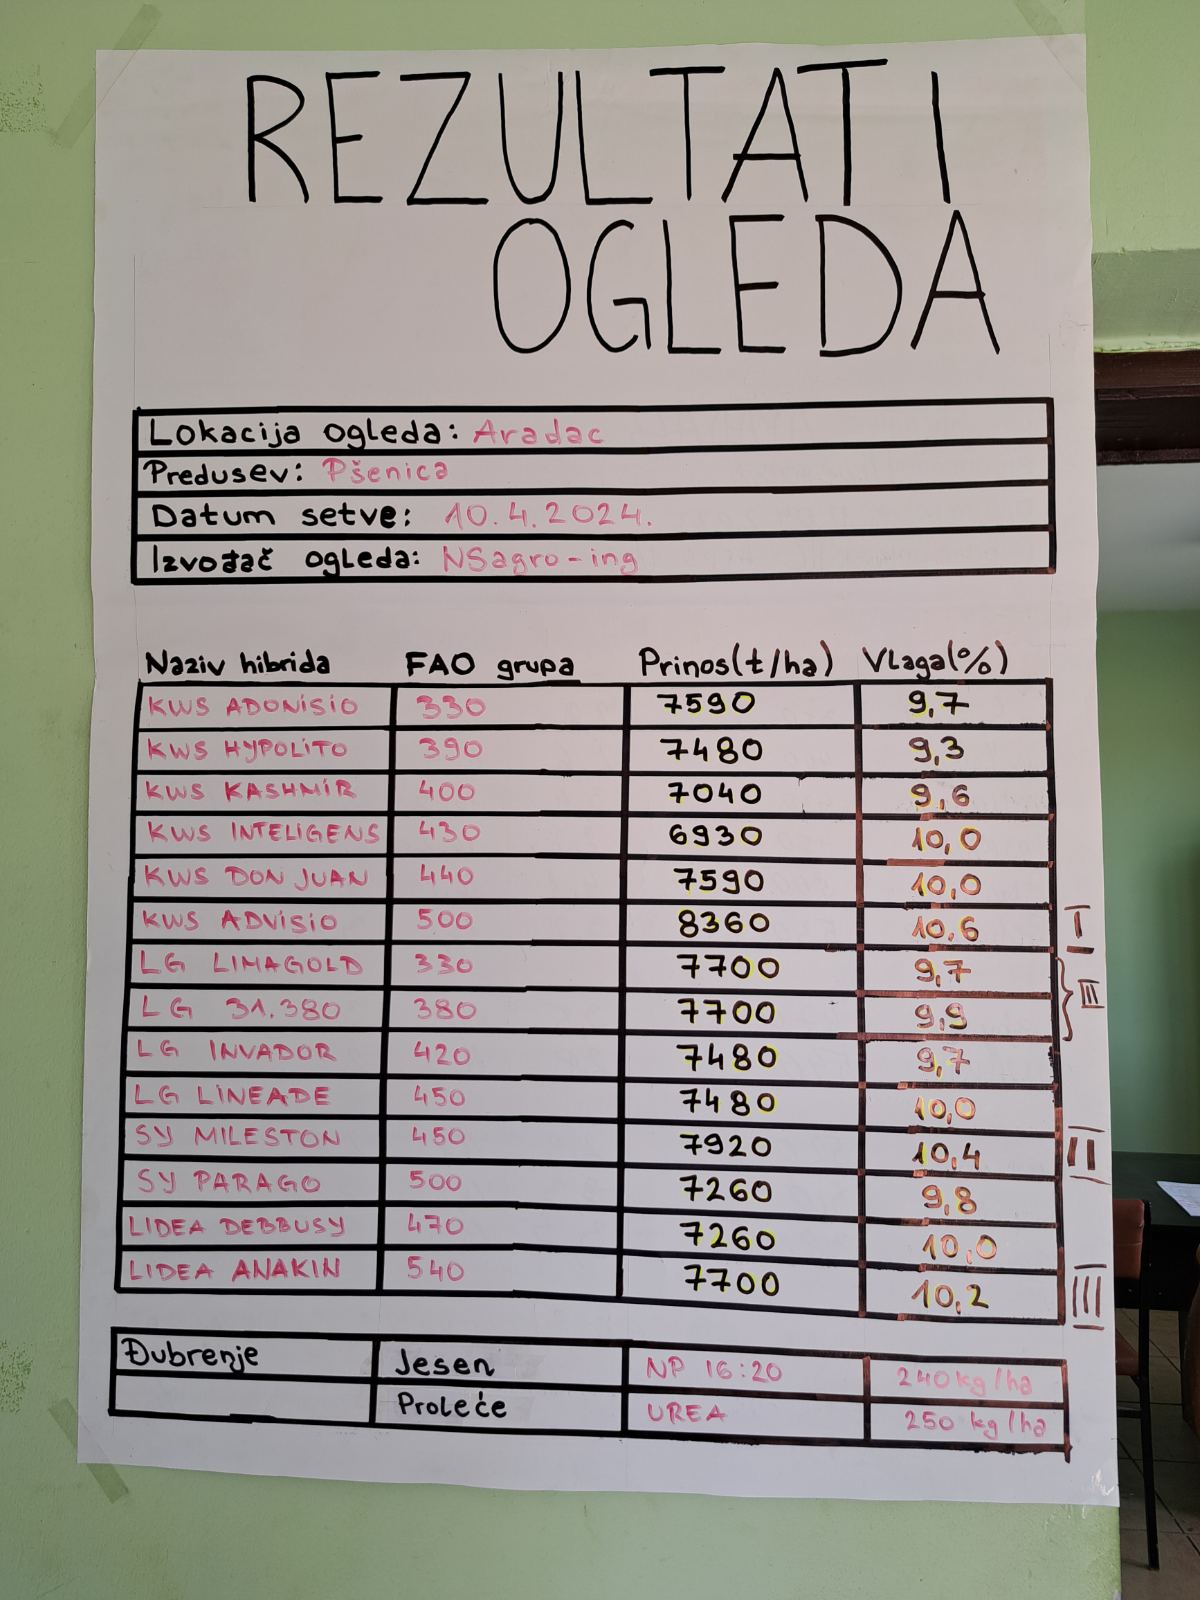 REZULTATI
OGLEDA
Lokacija ogleda: Aradac
Predusev: Pšenica
Datum setve: 10.4.2024.
Izvođač ogleda: NSagro-ing
Naziv hibrida FAO grupa Prinos(t/ha) Vlaga(%)
KWS ADONISIO 330 7590 9,7
KWS HYPOLITO 390 7480 9,3
KWS KASHMIR 400 7040 9,6
KWS INTELIGENS 430 6930 10,0
KWS DON JUAN 440 7590 10,0
KWS ADVISIO 500 8360 10,6 I
LG LIMAGOLD 330 7700 9,7
LG 31.380 380 7700 9,9 III
LG INVADOR 420 7480 9,7
LG LINEADE 450 7480 10,0
SY MILESTON 450 7920 10,4 II
SY PARAGO 500 7260 9,8
LIDEA DEBBUSY 470 7260 10,0
LIDEA ANAKIN 540 7700 10,2 III
Đubrenje Jesen NP 16:20 240 kg/ha
Proleće UREA 250 kg/ha